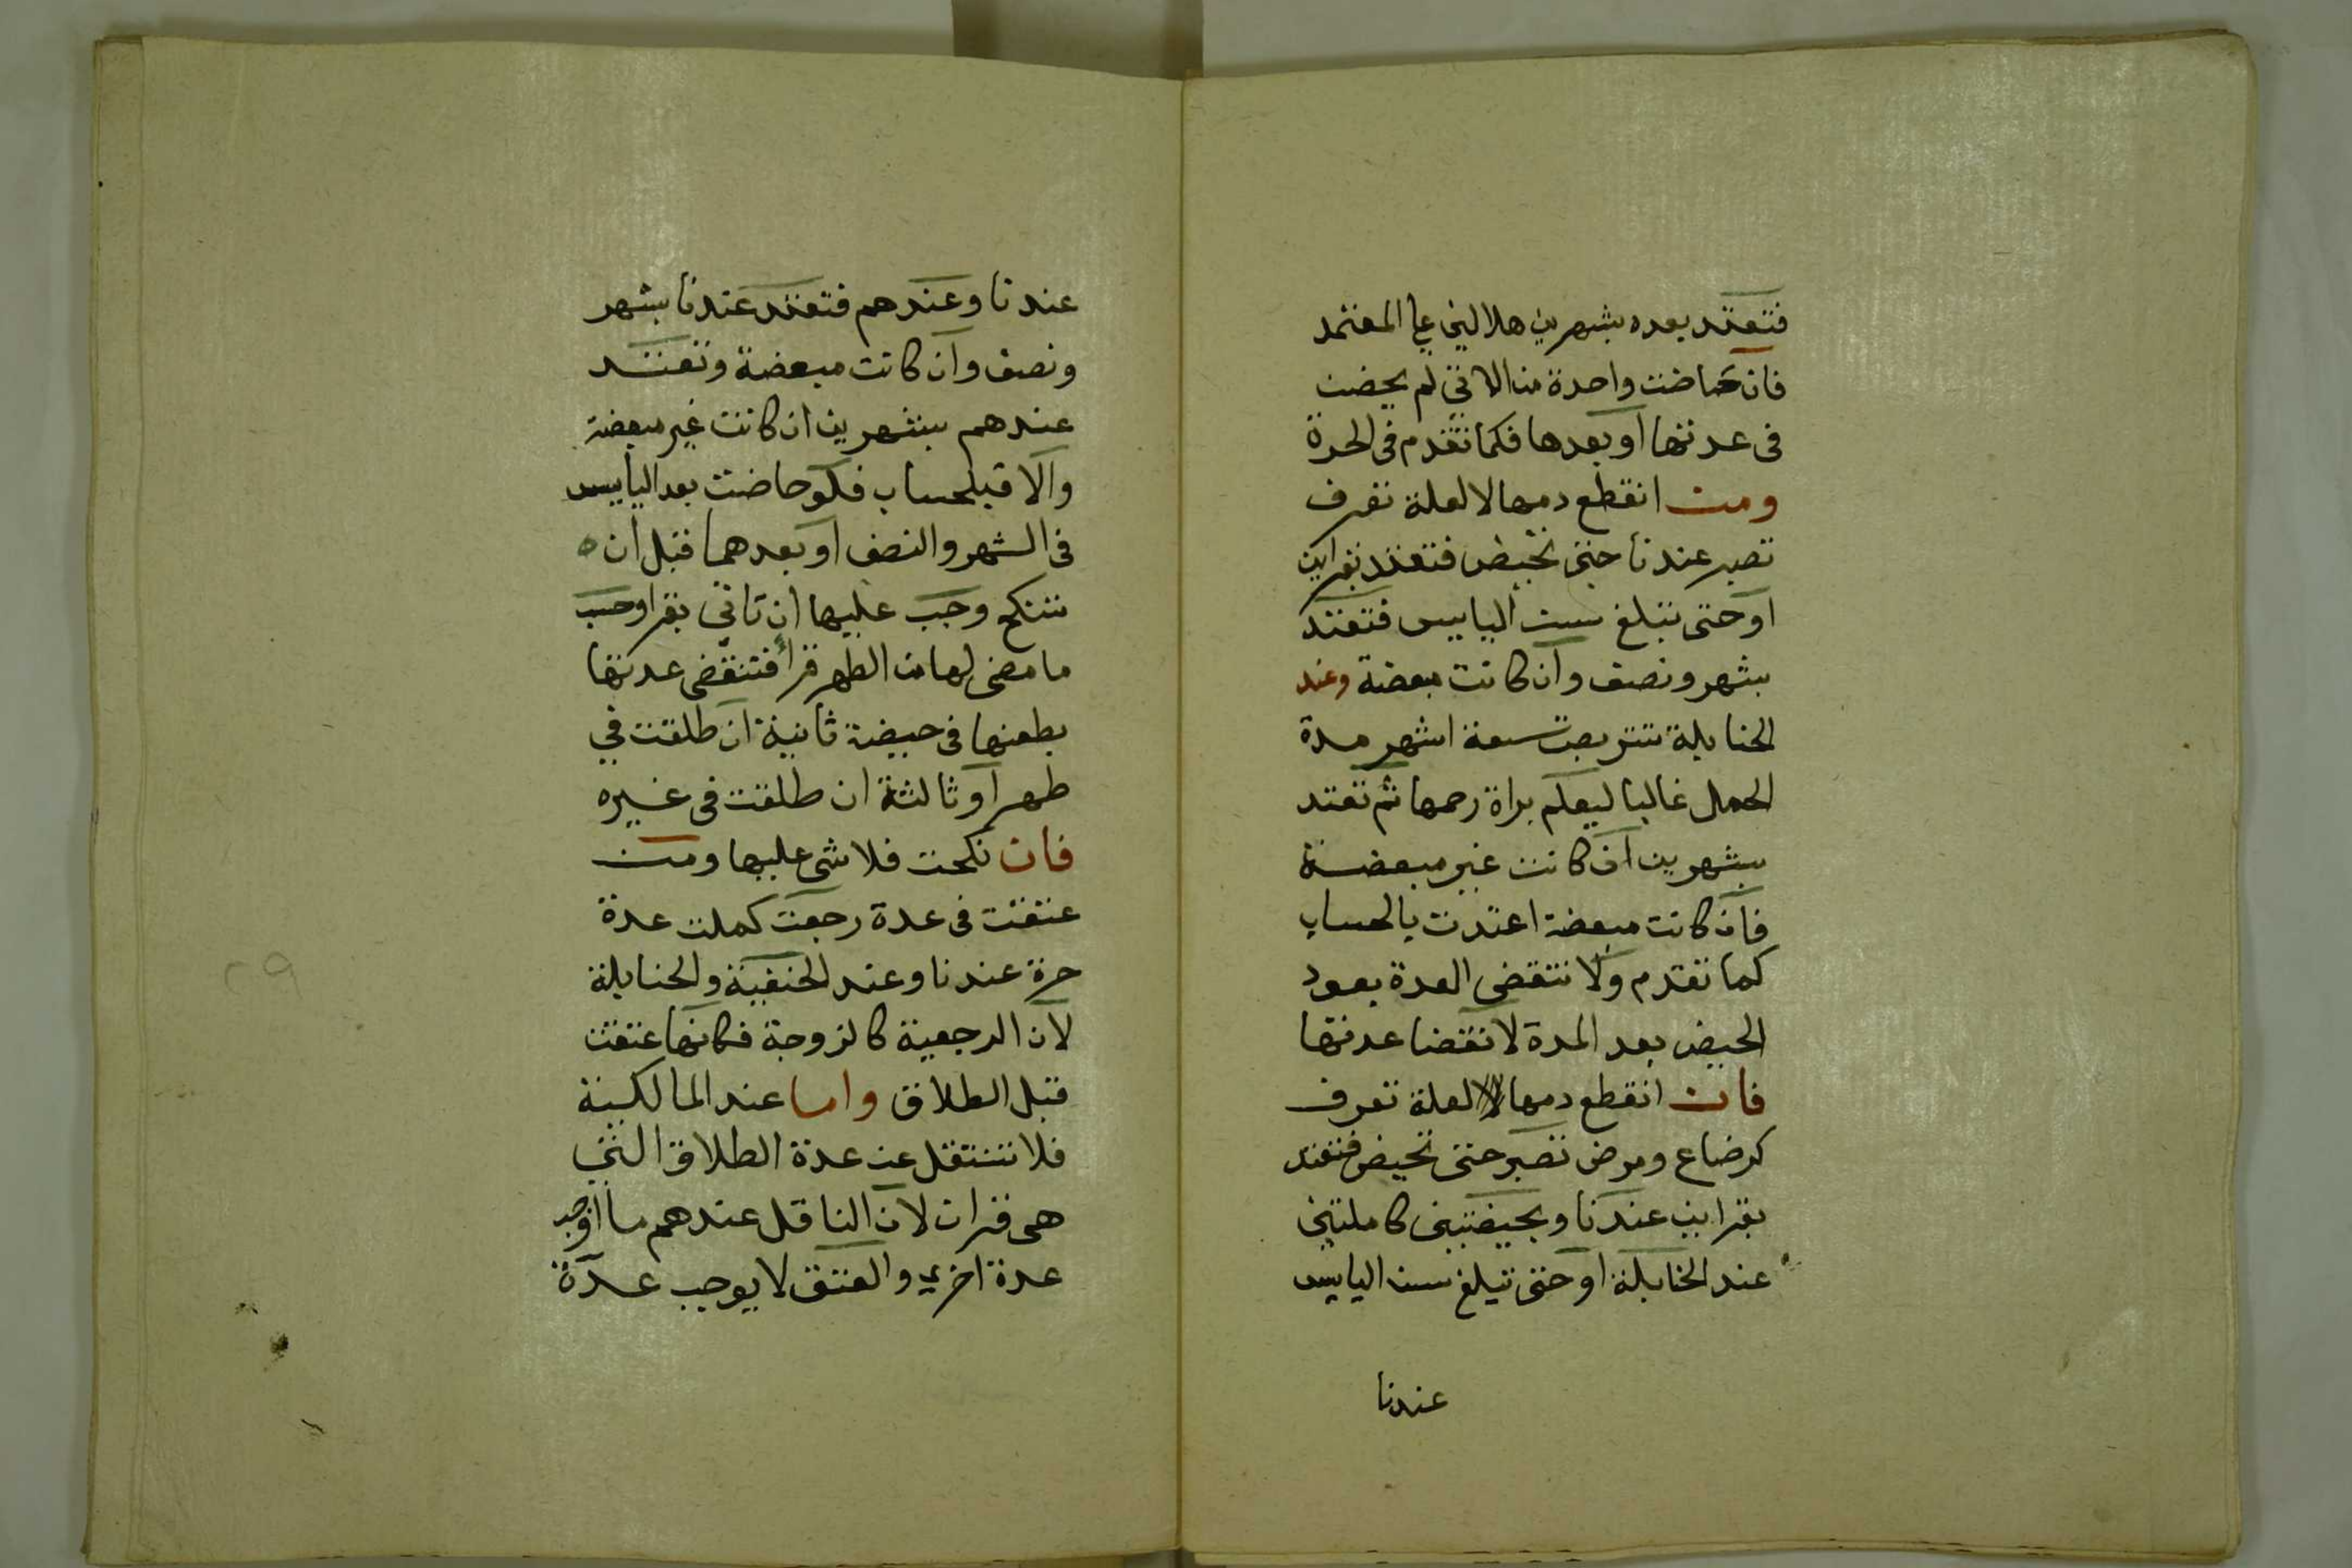 فتعتد بعده بشهرين هلاليين علي المعتمد
فان حاضت واحدة من الاتي لم يحضن
فى عدتها او بعدها فكما تقدم فى الحرة
ومن انقطع دمها لا لعلة تعرف
تصبر عندنا حتى تحيض فتعتد بقراين
او حتى تبلغ سن الياييس فتعتد
بشهر ونصف وان كانت مبعضة وعند
الحنابلة تتربص تسعة اشهر مدة
الحمل غالبا ليعلم براة رحمها ثم تعتد
بشهرين ان كانت غير مبعضة
فان كانت مبعضة اعتدت بالحساب
كما تقدم ولا تنقضى العدة بعود
الحيض بعد المدة لانقضا عدتها
فان انقطع دمها لعلة تعرف
كرضاع ومرض تصبر حتى تحيض فتعتد
بقراين عندنا وبحيضتين كاملتين
عند الحنابلة او حتى تبلغ سن الياييس
عندنا
عندنا وعندهم فتعتد عندنا بشهر
ونصف وان كانت مبعضة وتعتد
عندهم بشهرين ان كانت غير مبعضة
والا فبلحساب فلو حاضت بعد الياييس
فى الشهر والنصف او بعدهما قبل ان ه
تنكح وجب عليها ان تاتي بقرا وحسب
ما مضى لها من الطهر قرأ فتنقضى عدتها
بطعنها فى حيضة ثانية ان طلقت في
طهر او ثالثة ان طلقت فى غيره
فان نكحت فلا شى عليها ومن
عتقت فى عدة رجعت كملت عدة
حرة عندنا وعند الحنفية والحنابلة
لان الرجعية كالزوجة فكانها عتقت
قبل الطلاق واما عند المالكية
فلا تنتقل عن عدة الطلاق التي
هى قران لان الناقل عندهم ما اوجب
عدة اخري والعتق لا يوجب عدة
٢٩